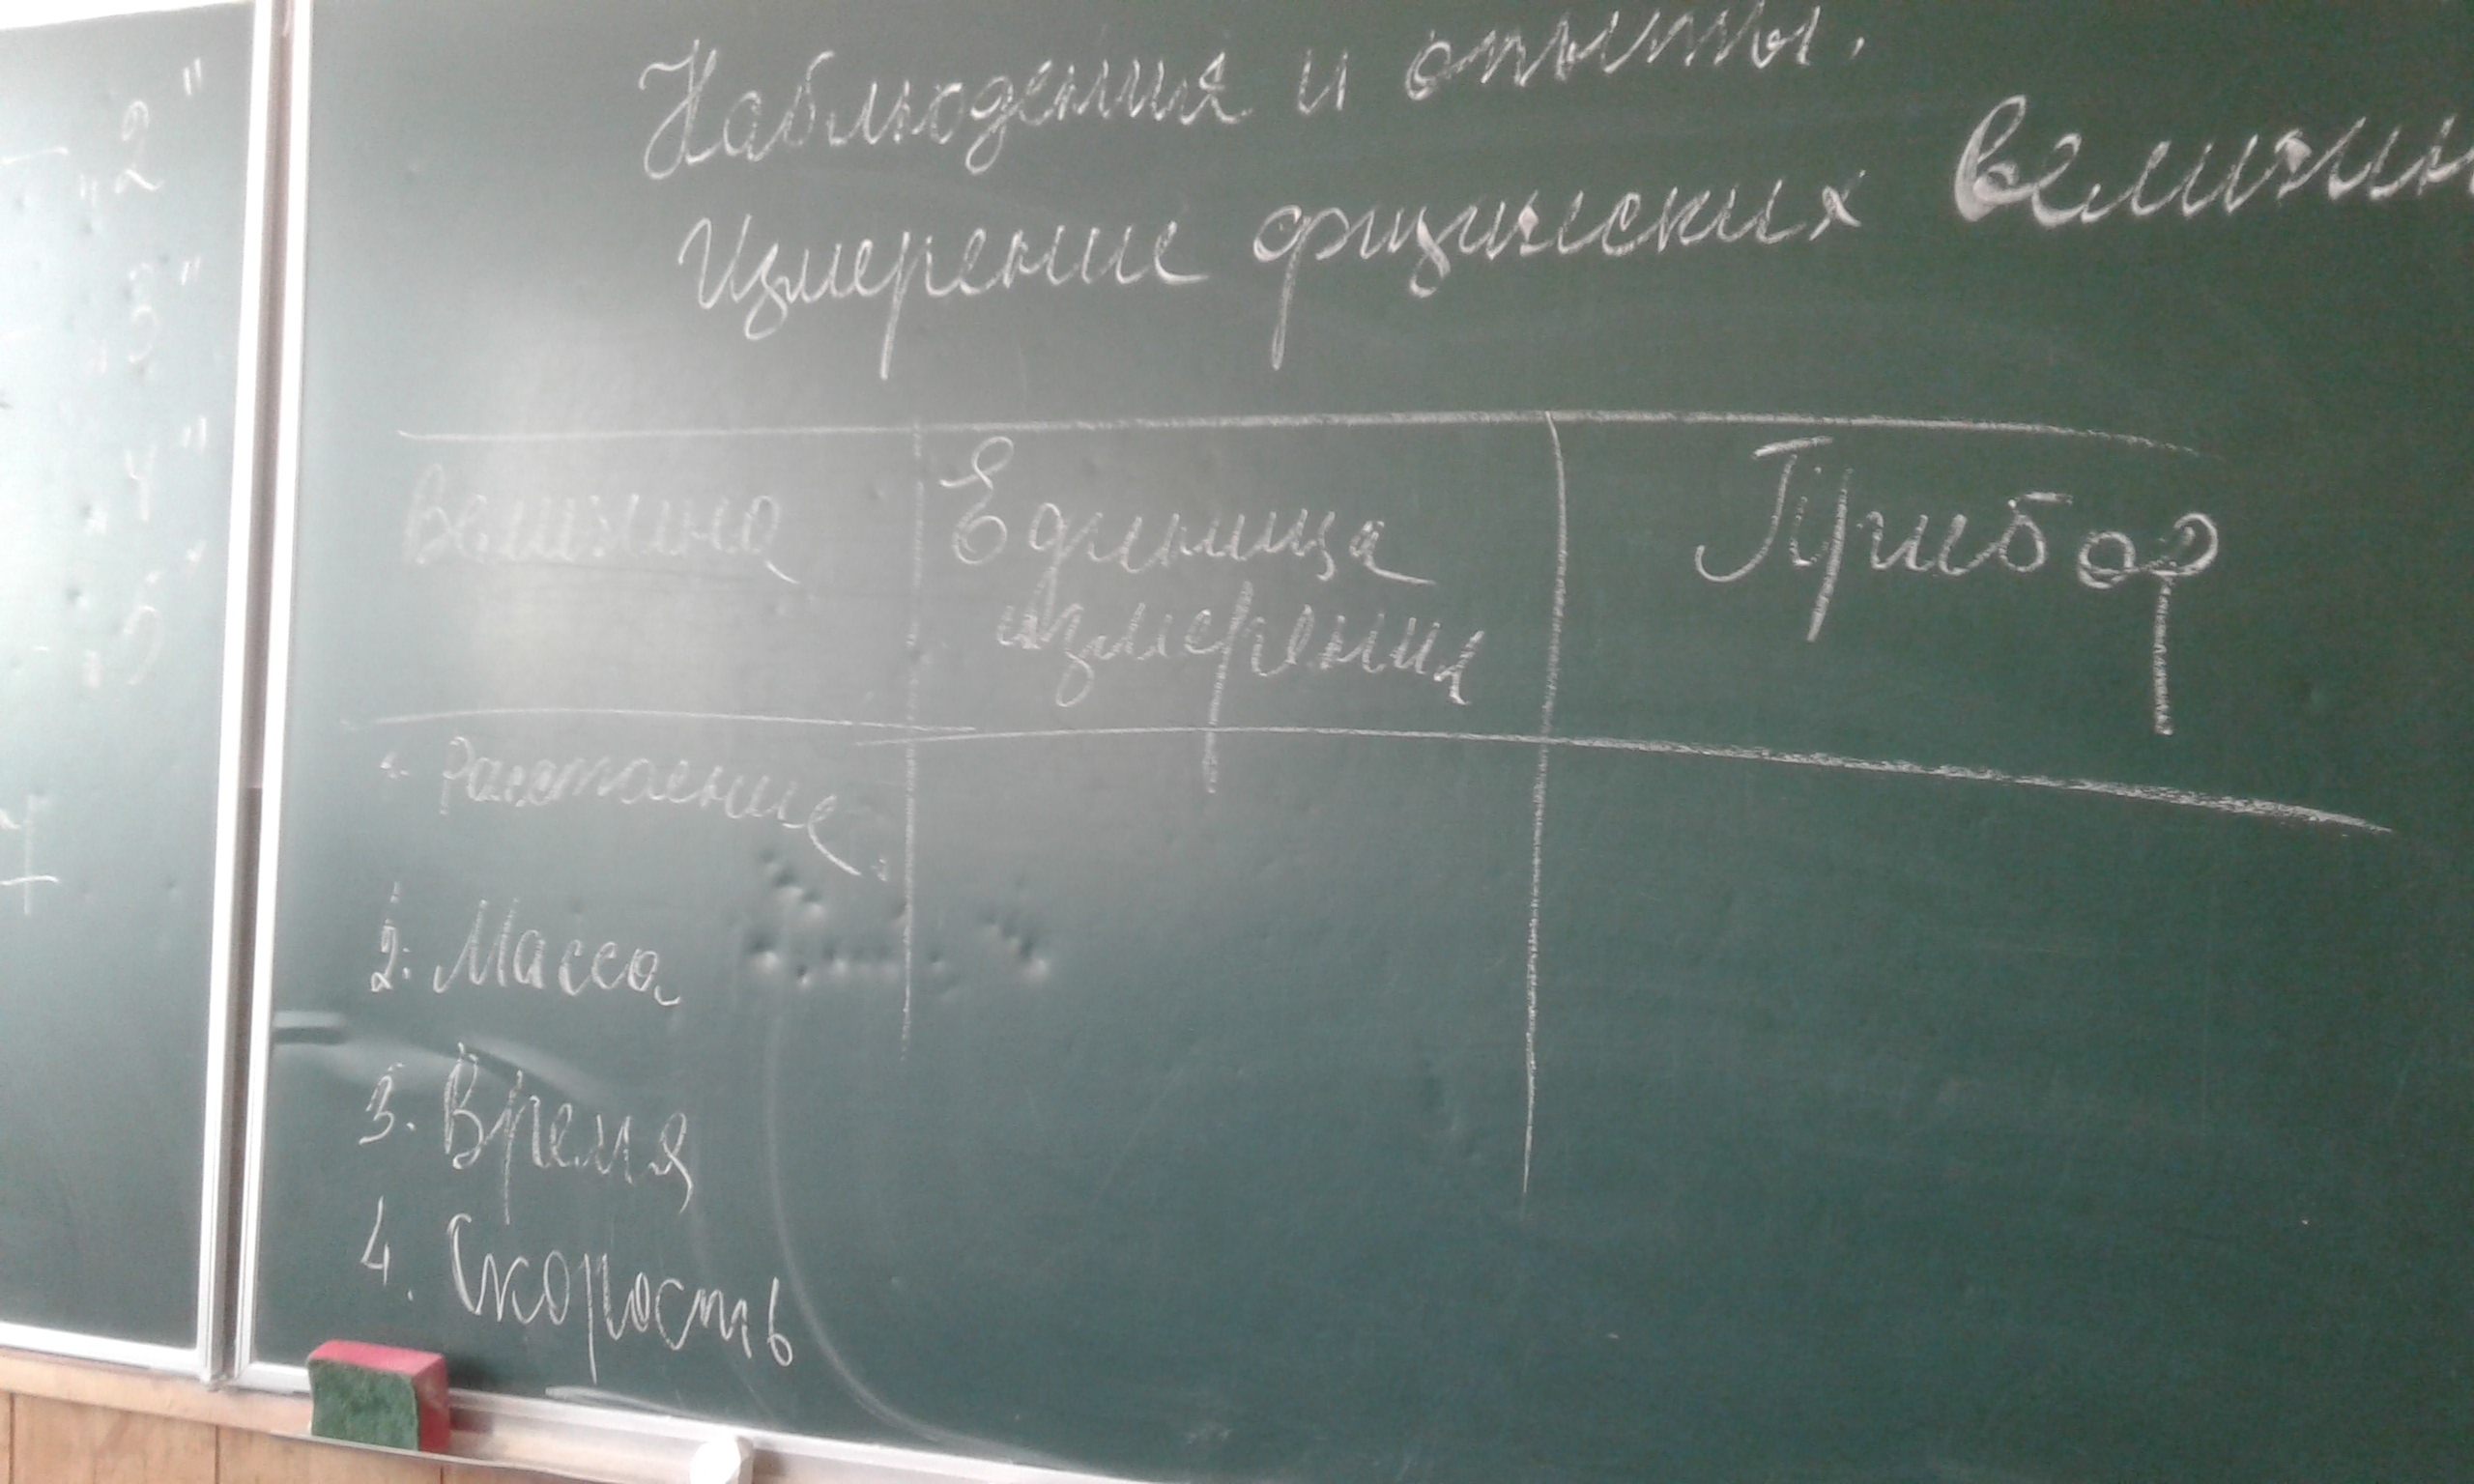 "2"
"3"
"4"
"5"
Наблюдения и опыты.
Измерение физических величин
Величина Единица измерения Прибор
1. Расстояние
2. Масса
3. Время
4. Скорость